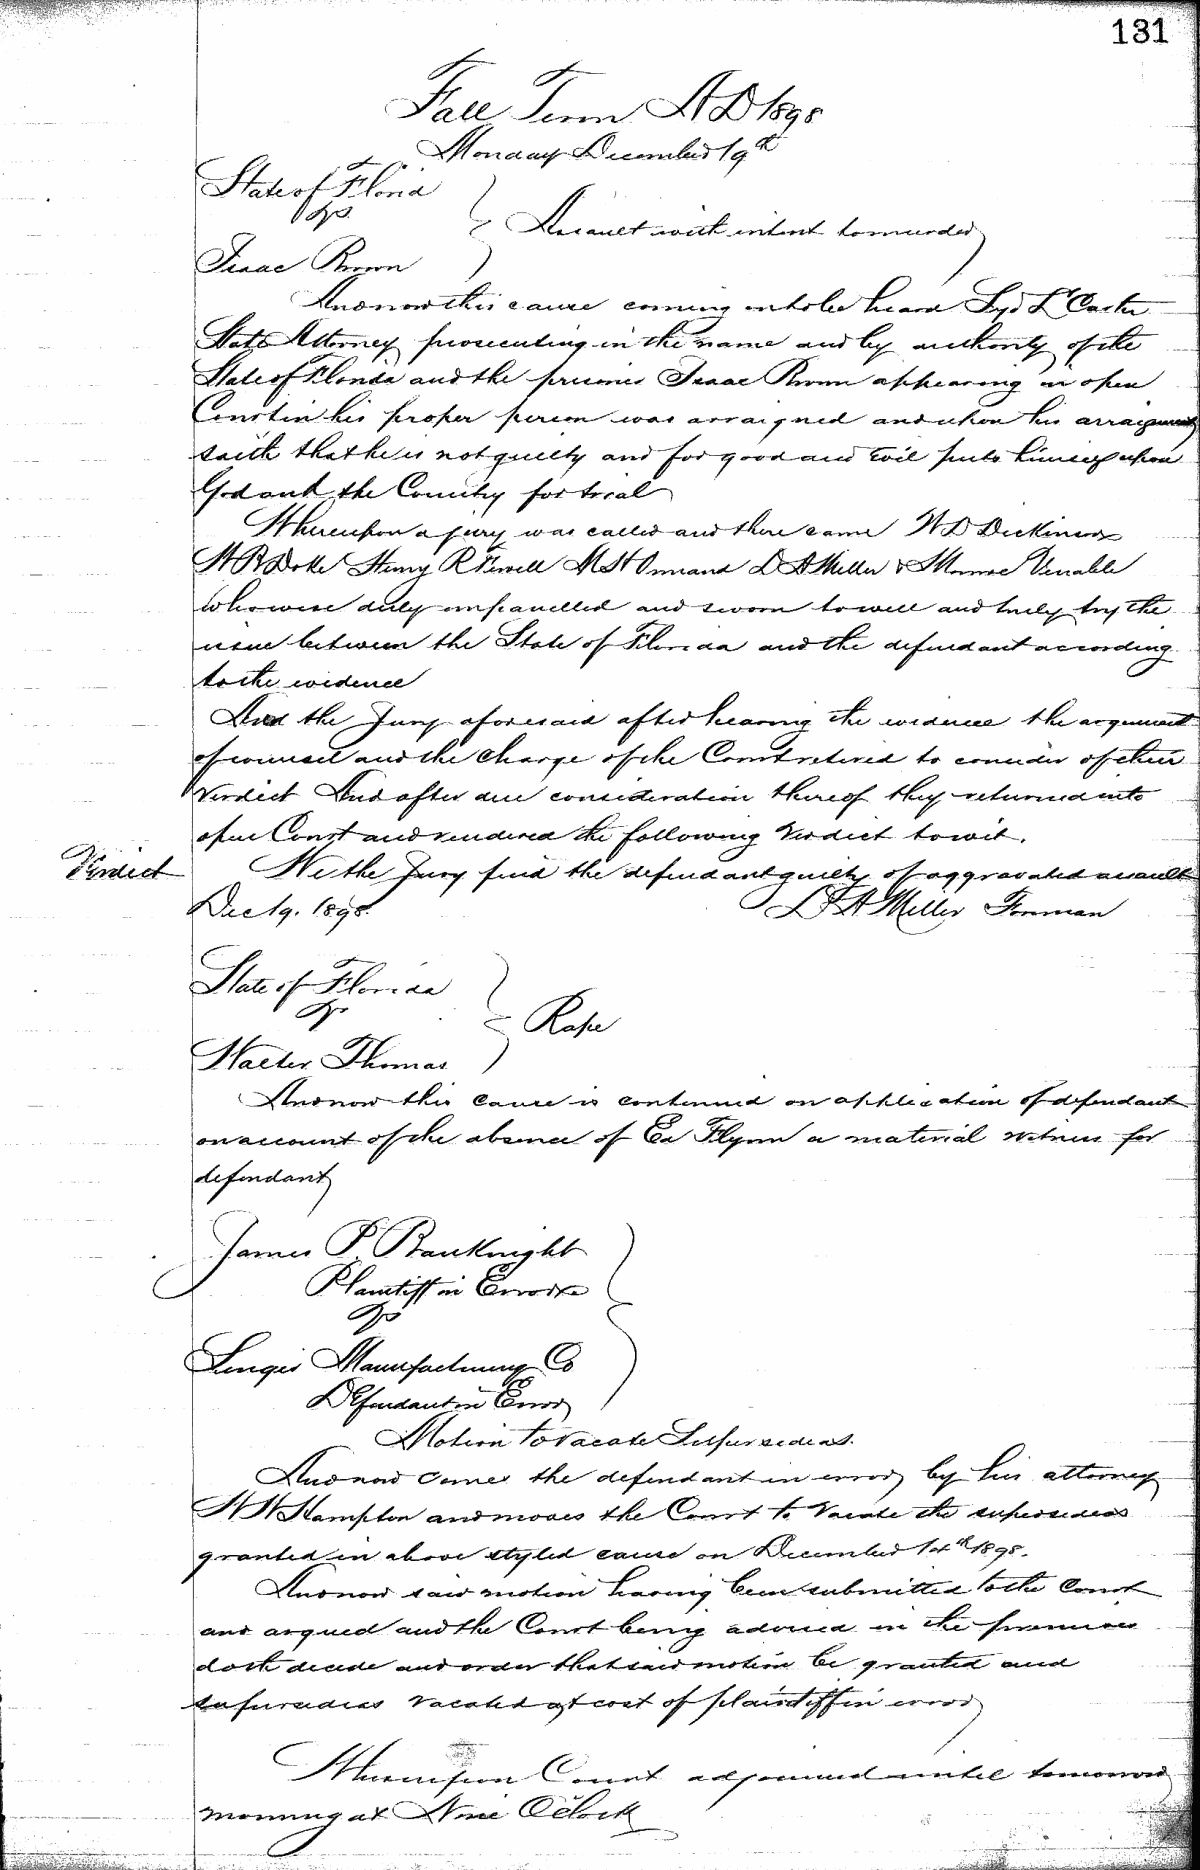 131
Fall Term A D 1898
Monday December 19th
State of Florida
vs
Assault with intent to murder
Isaac Brown
And now this cause coming on to be heard Syd L Carter
State Attorney prosecuting in the name and by authority of the
State of Florida and the prisoner Isaac Brown appearing in open
Court in his proper person was arraigned and upon his arraignment
saith that he is not guilty and for good and evil puts himself upon
God and the Country for trial
Whereupon a jury was called and there came W D Dickinson
H R Doke Henry R Fewell M H Ormand L A Miller & Monroe Venable
who were duly empanelled and sworn to well and truly try the
issue between the State of Florida and the defendant according
to the evidence
And the Jury aforesaid after hearing the evidence the argument
of counsel and the charge of the Court retired to consider of their
Verdict And after due consideration thereof they returned into
open Court and rendered the following Verdict towit.
Verdict
We the Jury find the defendant guilty of aggravated assault
Dec 19. 1898. L F A Miller Forman
State of Florida
vs
Rape
Walter Thomas
And now this cause is continued on application of defendant
on account of the absence of Ed Flynn a material witness for
defendant
James P. Bauknight
Plaintiff in Error
vs
Manufacturing Co
Defendant in Error
Motion to vacate Supersedeas.
And now comes the defendant in error by his attorney
W W Hampton and moves the Court to Vacate the supersedeas
granted in above styled cause on December 14th 1898.
And now said motion having been submitted to the Court
and argued and the Court being advised in the premises
doth decide and order that said motion be granted and
supersedeas vacated at cost of plaintiff in error
Whereupon Court adjourned until tomorrow
morning at Nine O'Clock